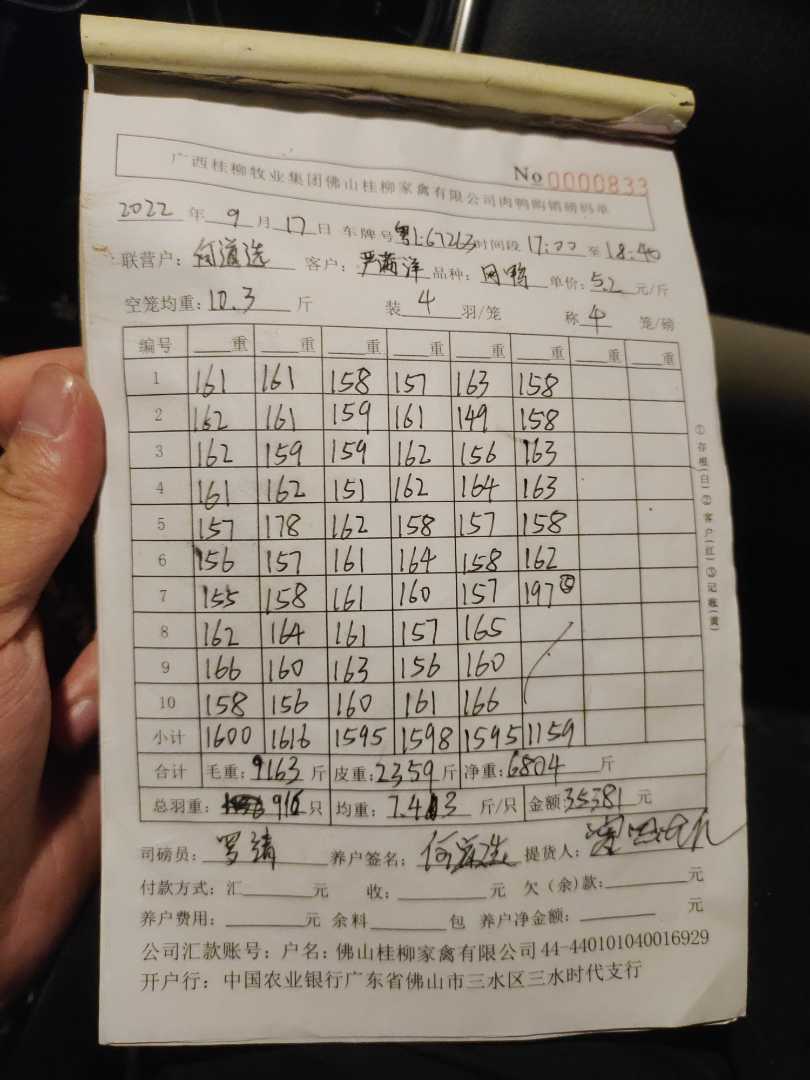 No 0000833
广西桂柳牧业集团佛山桂柳家禽有限公司肉鸭购销磅码单
2022 年 9 月 17 日 车牌号 粤L67263 时间段 17:00 至 18:40
联营户: 何道选 客户: 品种: 单价: 5.2 元/斤
空笼均重: 10.3 斤 装 4 羽/笼 称 4 笼/磅
编号 重 重 重 重 重 重 重 重
1 161 161 158 157 163 158
2 162 161 159 161 149 158
3 162 159 159 162 156 163
4 161 162 151 162 164 163
5 157 178 162 158 157 158
6 156 157 161 164 158 162
7 155 158 161 160 157 197
8 162 164 161 157 165
9 166 160 163 156 160
10 158 156 160 161 166
小计 1600 1616 1595 1598 1595 1159
合计 毛重: 9163 斤 皮重: 2359 斤 净重: 6804 斤
总羽重: 916 只 均重: 7.43 斤/只 金额: 35381 元
司磅员: 罗靖 养户签名: 何道选 提货人:
付款方式: 汇 元 收: 元 欠(余)款: 元
养户费用: 元 余料 包 养户净金额: 元
公司汇款账号: 户名: 佛山桂柳家禽有限公司 44-440101040016929
开户行: 中国农业银行广东省佛山市三水区三水时代支行
①存根(白)②客户(红)③记账(黄)